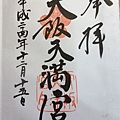 奉拝
大阪天満宮
平成二四年十二月十五日